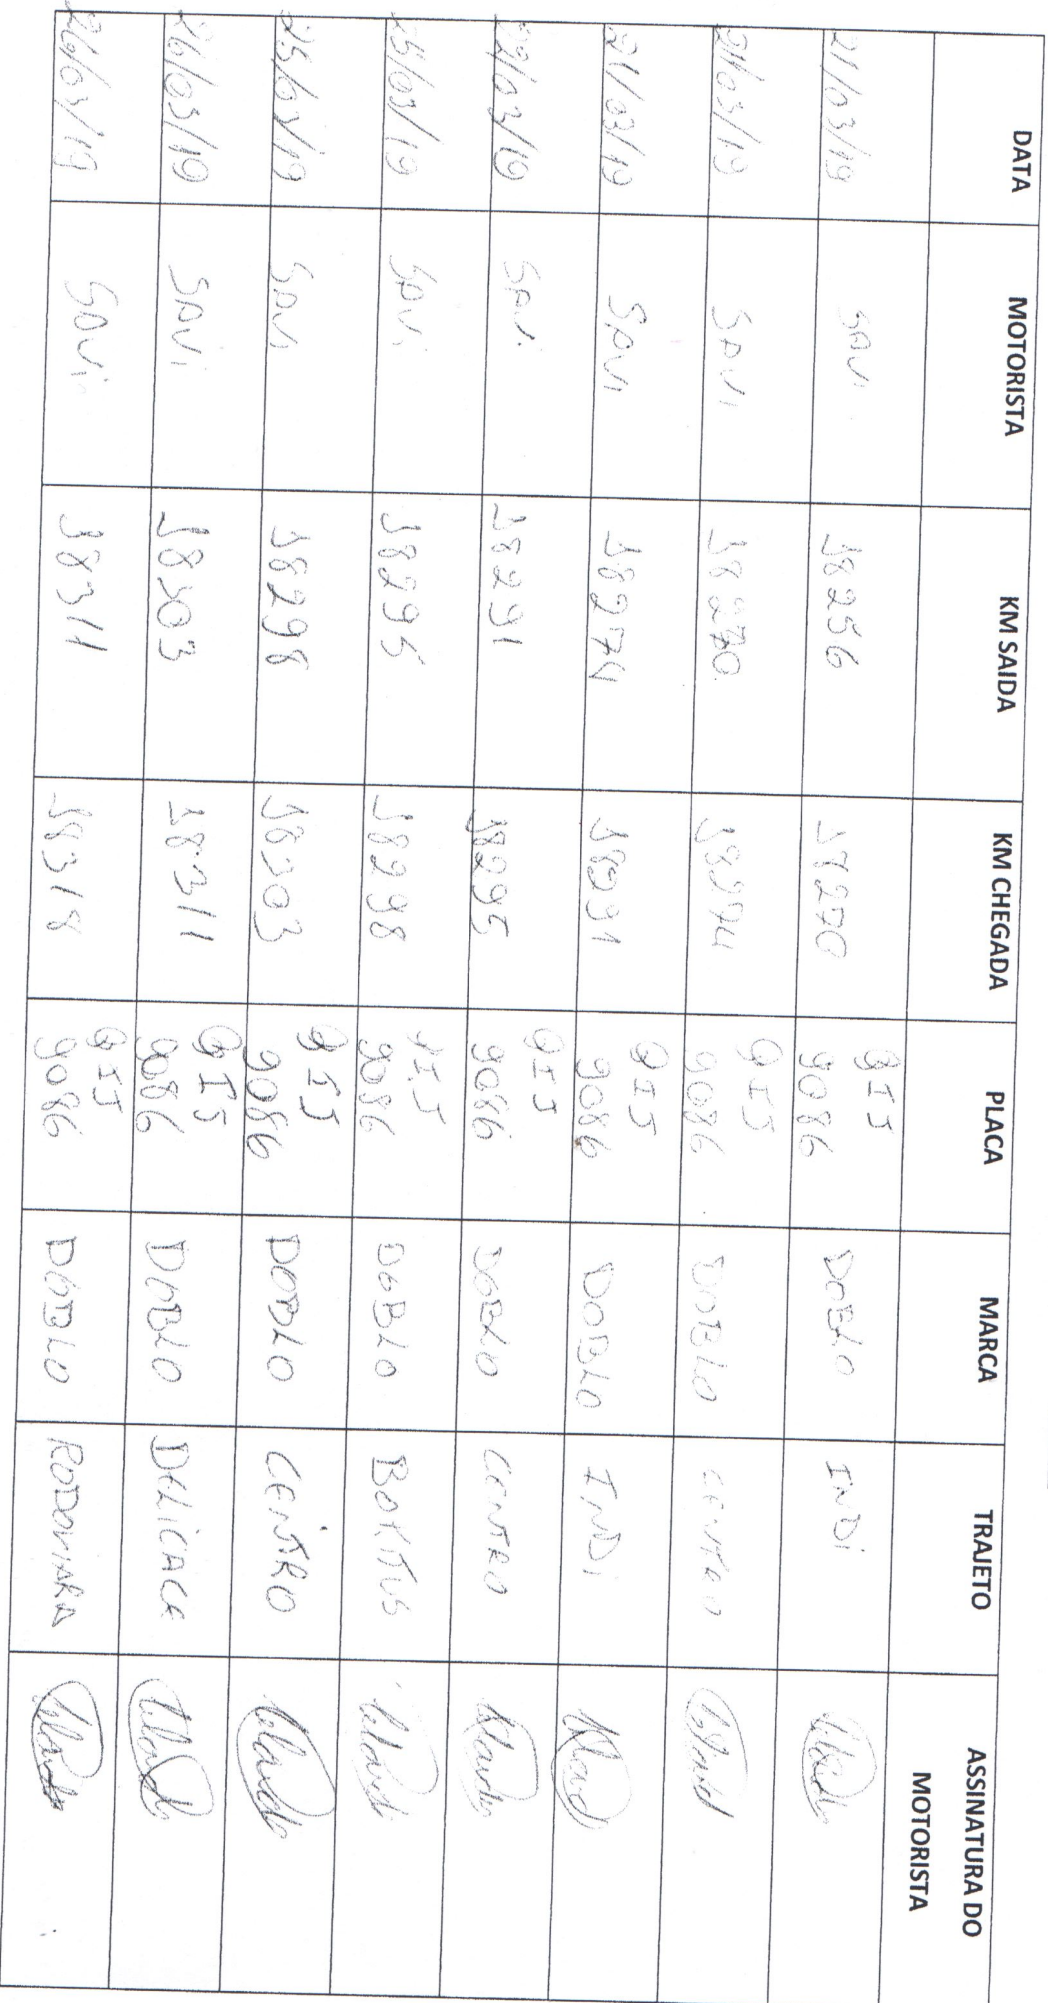 DATA MOTORISTA KM SAIDA KM CHEGADA PLACA MARCA TRAJETO ASSINATURA DO MOTORISTA
21/03/19 SAVI 38256 38270 QIJ 9086 DOBLO INDI
21/03/19 SAVI 38270 38274 QIJ 9086 DOBLO CENTRO
21/03/19 SAVI 38274 38291 QIJ 9086 DOBLO INDI
22/03/19 SAVI 38291 38295 QIJ 9086 DOBLO CENTRO
25/03/19 SAVI 38295 38298 QIJ 9086 DOBLO
25/03/19 SAVI 38298 38303 QIJ 9086 DOBLO CENTRO
26/03/19 SAVI 38303 38311 QIJ 9086 DOBLO
26/03/19 SAVI 38311 38318 QIJ 9086 DOBLO